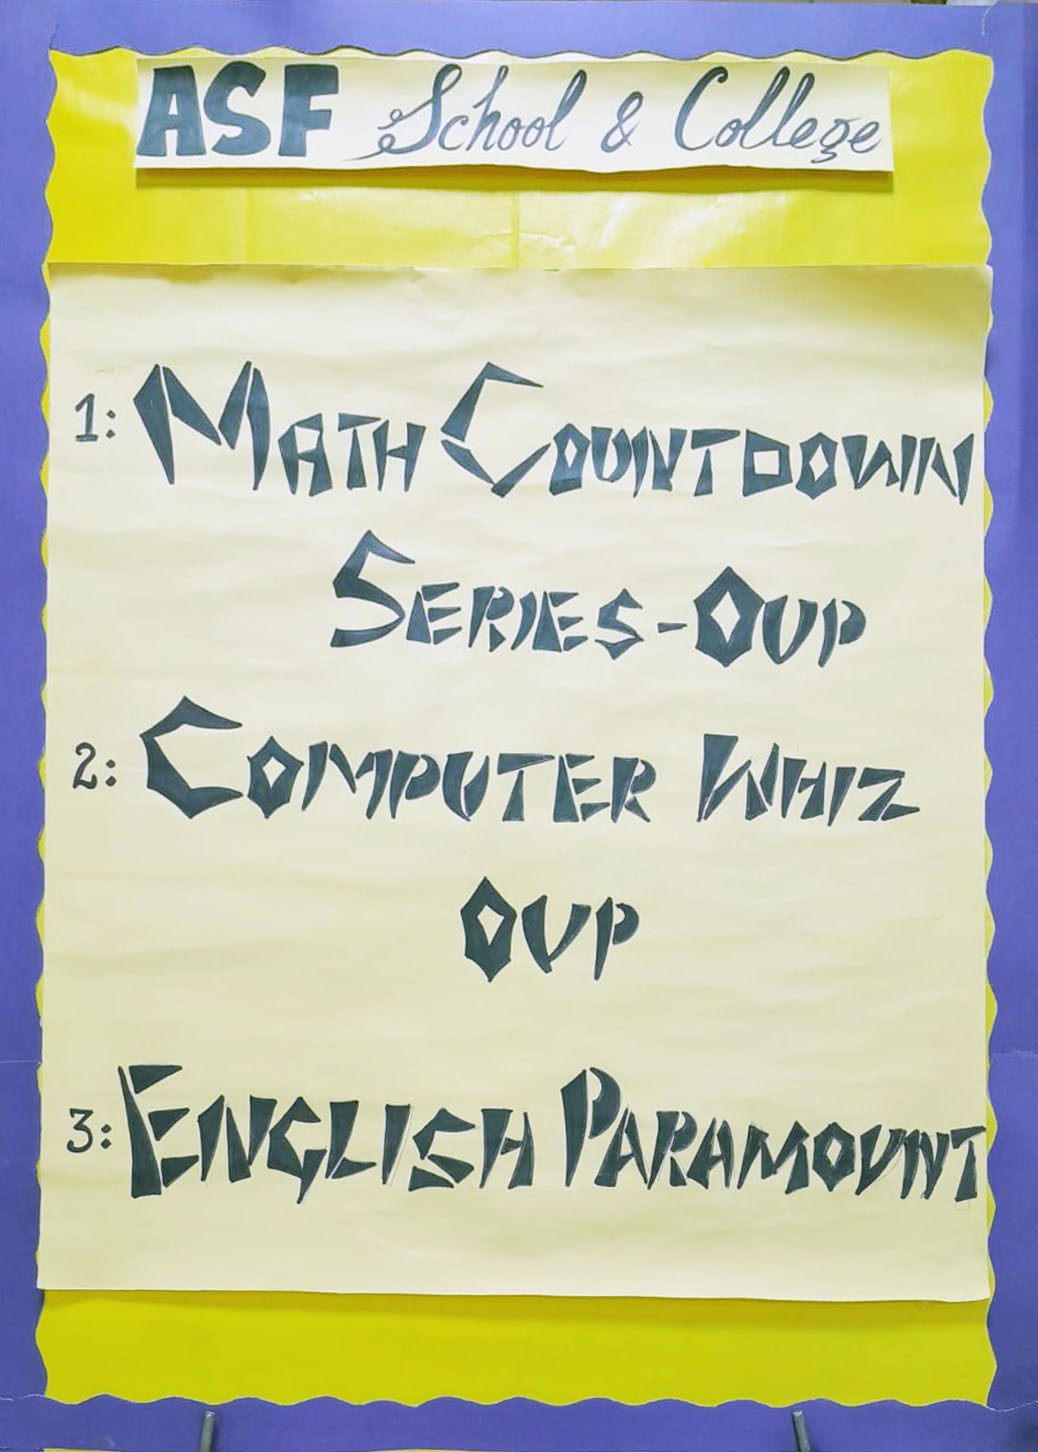 ASF School & College
1: MATH COUNTDOWN
SERIES-OUP
2: COMPUTER WHIZ
OUP
3: ENGLISH PARAMOUNT